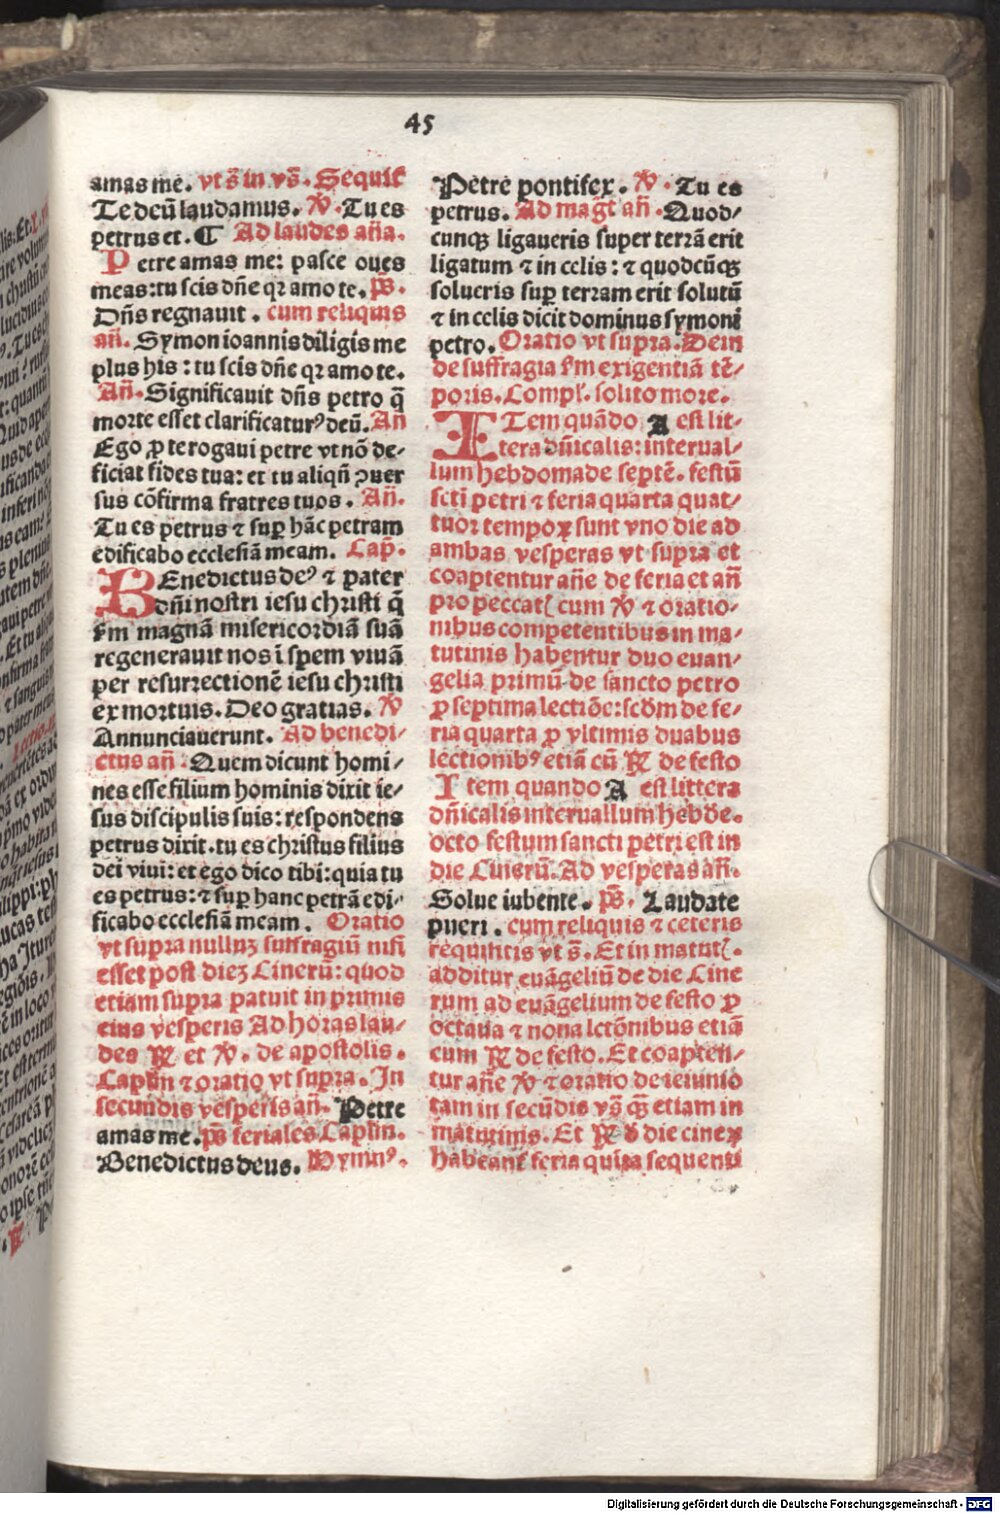 45
amas me. vt s̄ in vs̄. Sequit᷑
Te deū laudamus. ꝟ. Tu es
petrus et. ¶ Ad laudes an̄a.
Petre amas me: pasce oues
meas: tu scis dn̄e qꝛ amo te. ps̄.
Dn̄s regnauit. cum reliquis
an̄. Symon ioannis diligis me
plus his: tu scis dn̄e qꝛ amo te.
An̄. Significauit dn̄s petro q̄
morte esset clarificaturꝰ deū. An̄
Ego ꝓ te rogaui petre vt nō de⸗
ficiat fides tua: et tu aliqn̄ ꝯuer
sus cōfirma fratres tuos. An̄.
Tu es petrus ⁊ suꝑ hāc petram
edificabo ecclesiā meam. Cap̄.
BEnedictus deꝰ ⁊ pater
dn̄i nostri iesu christi q̄
ẜm magnā misericordiā suā
regenerauit nos ī spem viuā
per resurrectionē iesu christi
ex mortuis. Deo gratias. ꝟ
Annunciauerunt. Ad benedi⸗
ctus an̄. Quem dicunt homi⸗
nes esse filium hominis dixit ie⸗
sus discipulis suis: respondens
petrus dixit. tu es christus filius
dei viui: et ego dico tibi: quia tu
es petrus: ⁊ suꝑ hanc petrā edi⸗
ficabo ecclesiā meam. Oratio
vt supra nulluꝫ suffragiū nisi
esset post dieꝫ Cinerū: quod
etiam supra patuit in primis
eius vesperis Ad horas lau⸗
des ꝶ et ꝟ. de apostolis.
Caplm̄ ⁊ oratio vt supra. In
secundis vesperis an̄. Petre
amas me. ps̄ feriales Caplm̄.
Benedictus deus. Hymnꝰ.
Petre pontifex. ꝟ. Tu es
petrus. Ad maḡt an̄. Quod⸗
cunqꝫ ligaueris super terrā erit
ligatum ⁊ in celis: ⁊ quodcūqꝫ
solueris suꝑ terram erit solutū
⁊ in celis dicit dominus symoni
petro. Oratio vt supra. Dein
de suffragia ẜm exigentiā tē⸗
poris. Compl̄. solito more.
ITem quādo A est lit⸗
tera dn̄icalis: interual⸗
lum hebdomade septē. festū
sctī petri ⁊ feria quarta quat⸗
tuor tempoꝝ sunt vno die ad
ambas vesperas vt supra et
coaptentur an̄e de feria et an̄
pro peccat̄ cum ꝟ ⁊ oratio⸗
nibus competentibus in ma⸗
tutinis habentur duo euan⸗
gelia primū de sancto petro
ꝓ septima lectiōe: scd̄m de fe⸗
ria quarta ꝓ vltimis duabus
lectionibꝰ etiā cū ꝶ de festo
Item quando A est littera
dn̄icalis interuallum hebde.
octo festum sancti petri est in
die Cinerū. Ad vesperas an̄.
Solue iubente. ps̄. Laudate
pueri. cum reliquis ⁊ ceteris
requisitis vt s̄. Et in matut̄.
additur euāgeliū de die Cine
rum ad euāgelium de festo ꝓ
octaua ⁊ nona lctōnibus etiā
cum ꝶ de festo. Et coapten⸗
tur an̄e ꝟ ⁊ oratio de ieiunio
tam in secūdis vs̄ qꝫ etiam in
matutinis. Et ꝶ d̄ die cineꝝ
habeant᷑ feria quinta sequenti
Digitalisierung gefördert durch die Deutsche Forschungsgemeinschaft - DFG